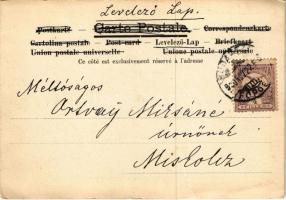 Levelező Lap.
Postkarte — Carte Postale — Correspondenzkarte
Cartolina postale — Post-card — Levelező-Lap — Briefkaart
Union postale universelle. Unione postale universale.
Ce côté est exclusivement réservé à l'adresse
Méltóságos
Ortvay Mirsáné
úrnőnek
Miskolcz